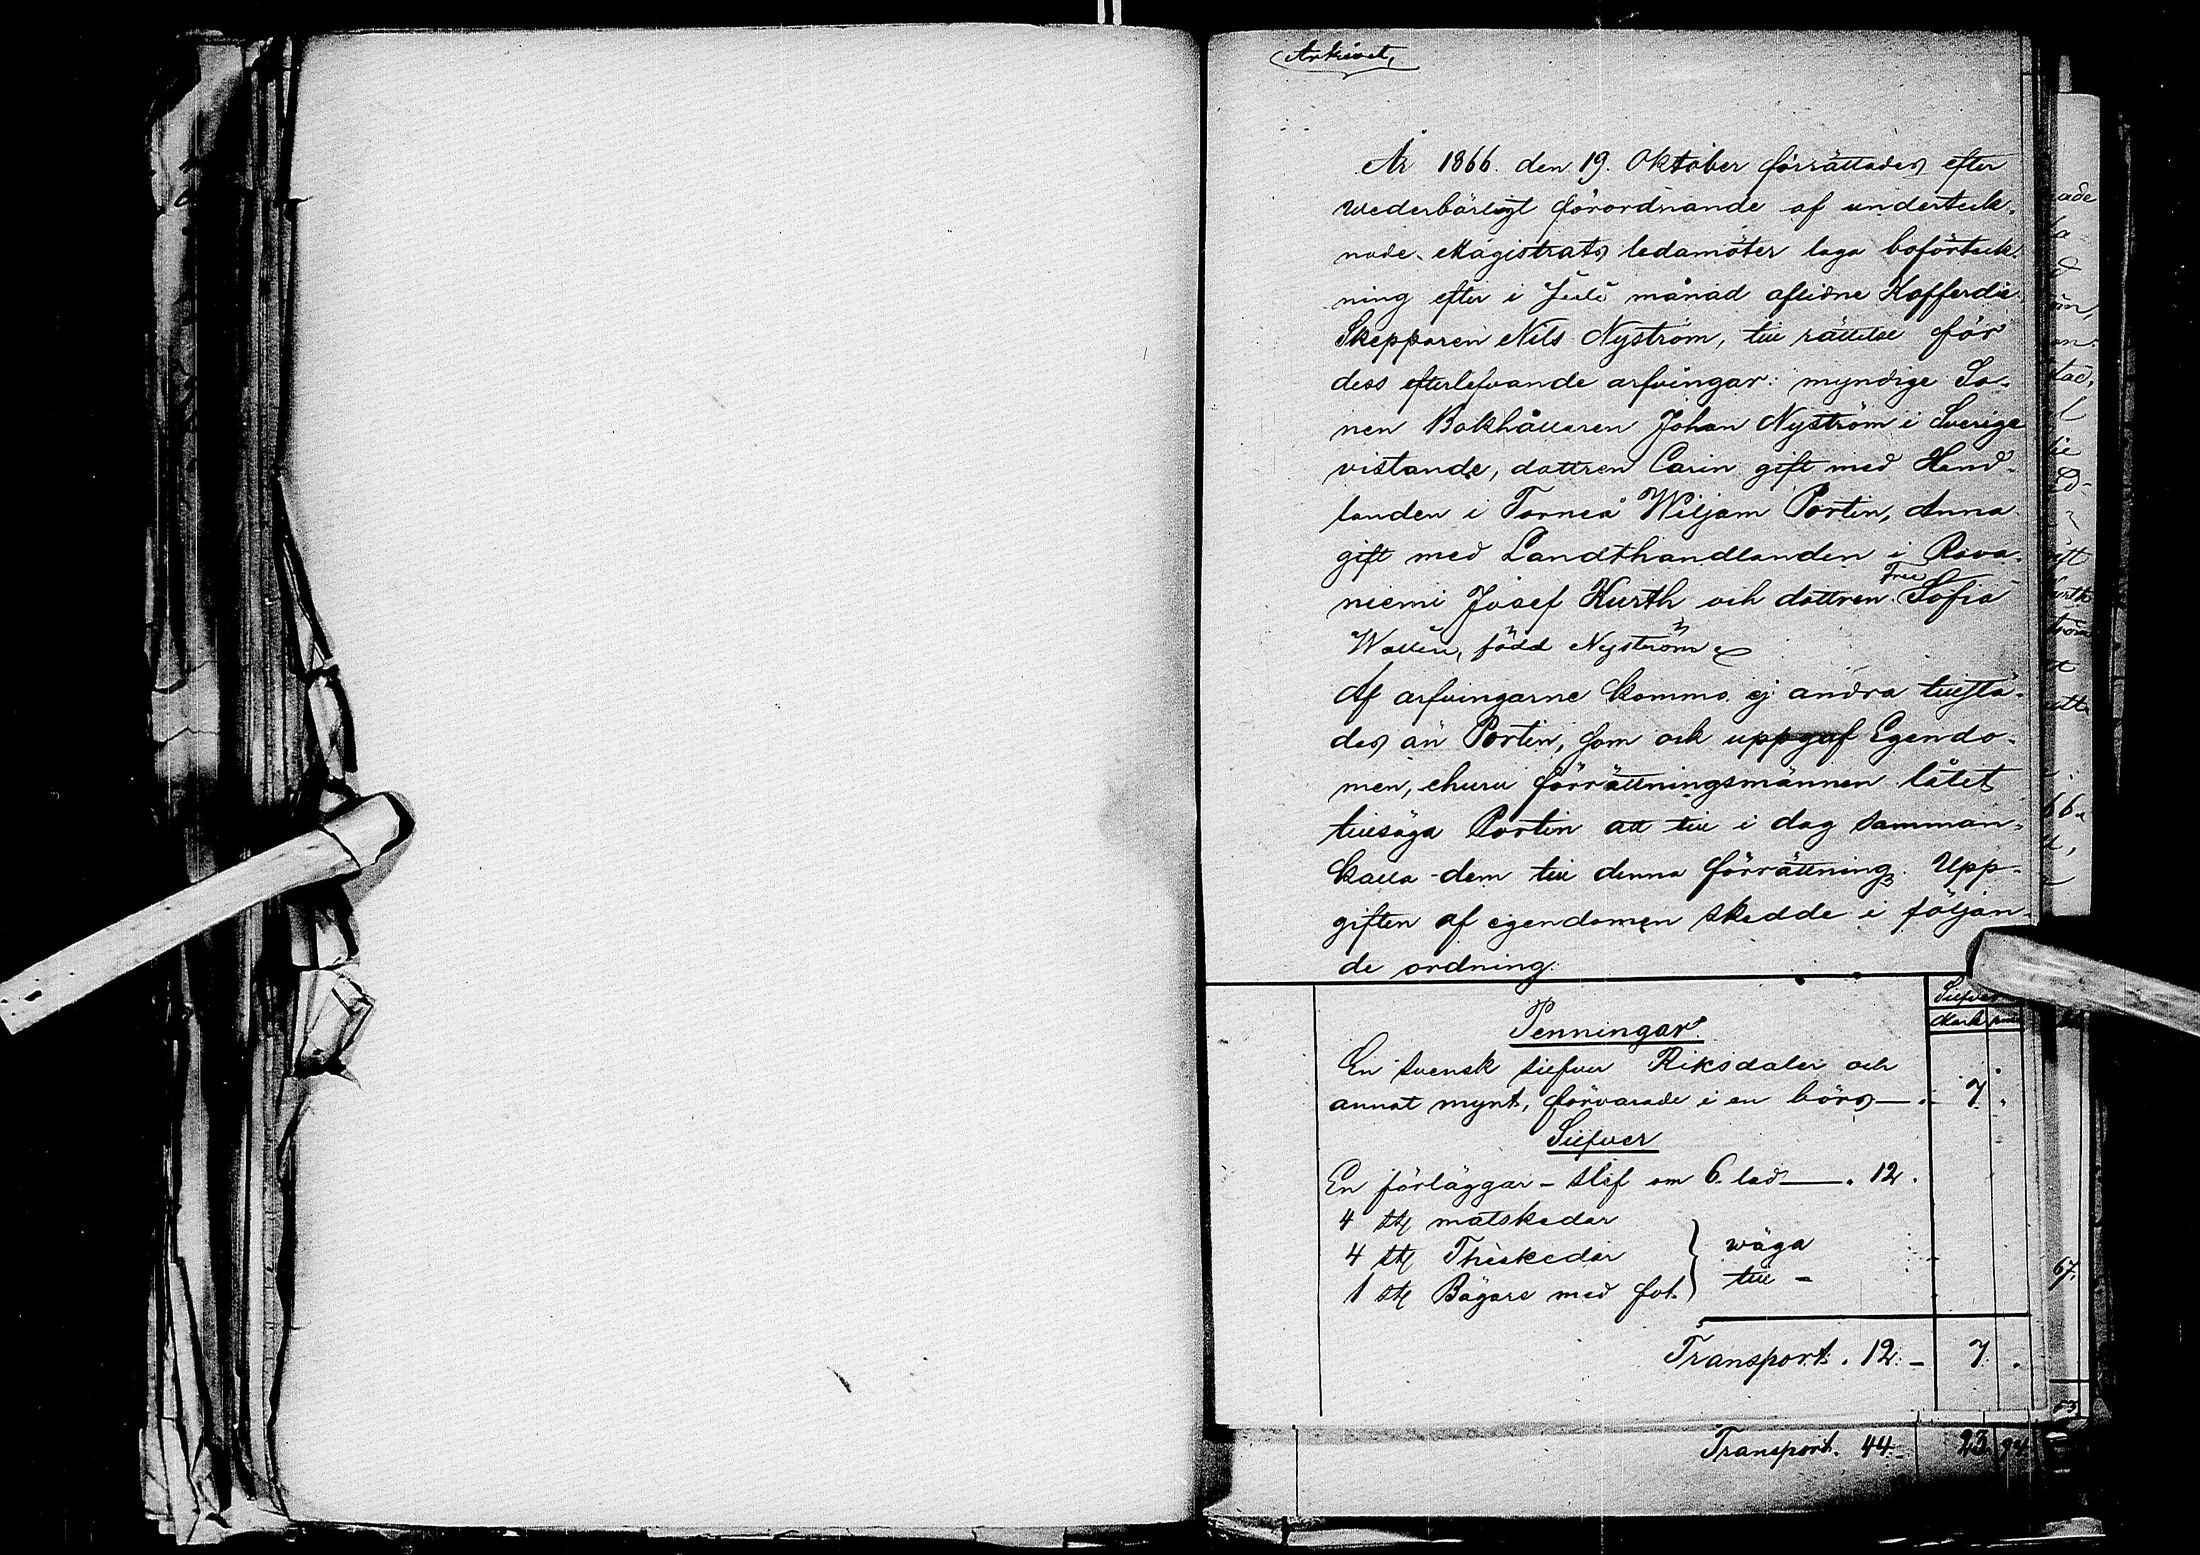 Arkivet,
År 1866. den 19. Oktober förrättades efter
wederbörligt förordnande af underteck-
nade Magistrats ledamöter laga boförteck-
ning efter i Juli månad aflidne Kofferdie
Skepparen Nils Nyström, till rättelse för
dess efterlefvande arfvingar: myndige So-
nen Bokhållaren Johan Nyström i Sverige
vistande, dottren Carin gift med Hand-
landen i Torneå Wiljam Portin, Anna
gift med Landthandlanden i Rova-
niemi Josef Kurth och dottren Fru Sofia
Wallin, född Nyström.
Af arfvingarne kommo ej andra tillstä-
des än Portin, som ock uppgaf Egendo-
men, churu förrättningsmännen låtet
tillsäga Portin att till i dag samman-
kalla dem till denna förrättning. Upp-
giften af egendomen skedde i följan-
de ordning:
Silfver
Mark
Penningar.
En svensk silfver Riksdaler och
annat mynt, förvarade i en börs — 7 .
Silfver
En förläggar-slef om 6 lod — . 12.
4 st matskedar
4 st Theskedar } wäga
1 st Bägare med fot. till -
Transport. 12. - 7. .
Transport. 44. - 23 94